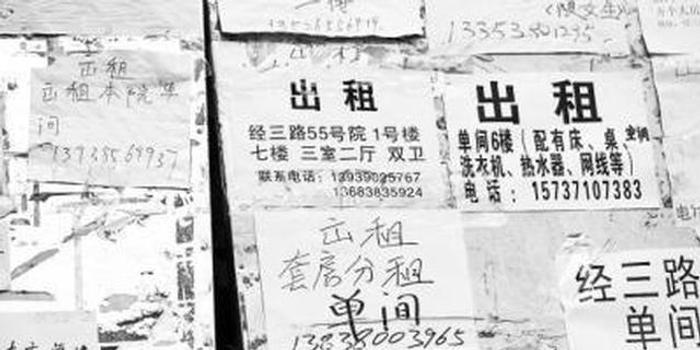 出租
出租本院单
间
13353801295
出租
经三路55号院 1号楼
七楼 三室二厅 双卫
联系电话：13939025767
13683835924
出租
单间6楼（配有床、桌、空调
洗衣机、热水器、网线等）
电话：15737107383
出租
套房分租
单间
13838003965
经三路
单间